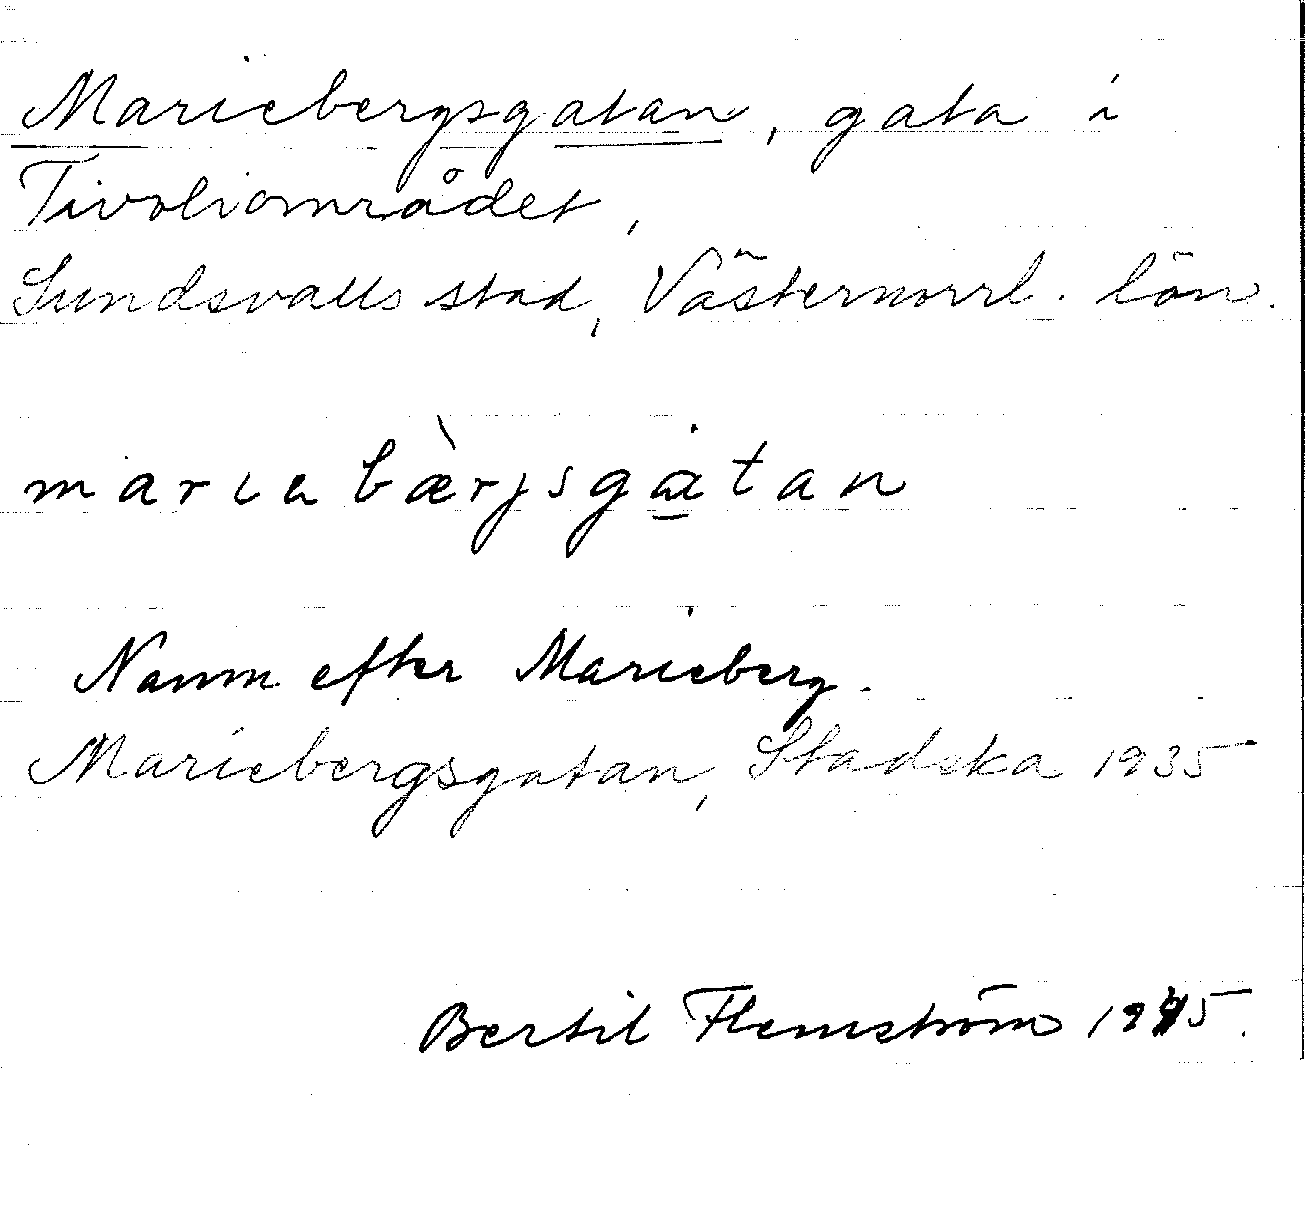 Mariebergsgatan, gata i
Tivoliområdet,
Sundsvalls stad, Västernorrl. län.
mariebæ̀rjsgatan
Namn efter Marieberg.
Mariebergsgatan, Stadska 1935
Bertil Flemström 1945.